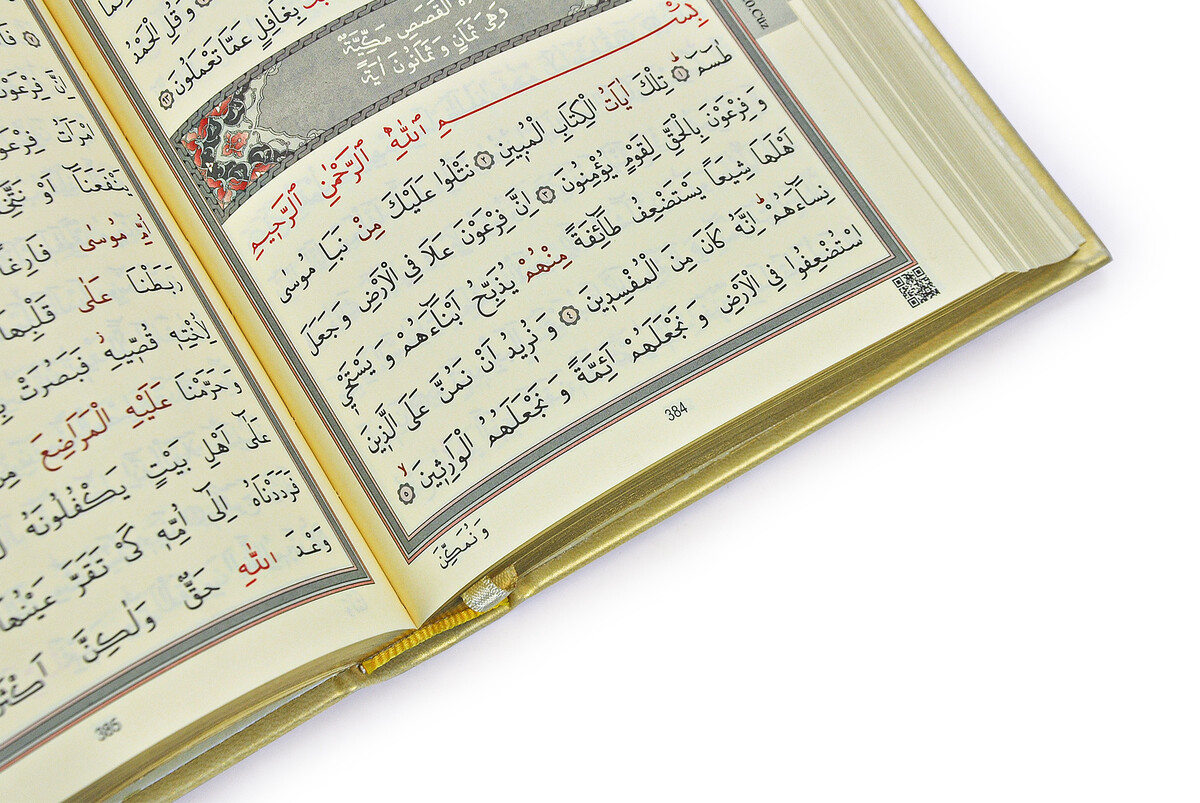 وَ قُلِ الْحَمْدُ
بِغَافِلٍ عَمَّا تَعْمَلُونَ ﴿٩٣﴾
الْقَصَصِ مَكِّيَّةٌ
وَهِىَ ثَمَانٍ وَ ثَمَانُونَ اٰيَةً
بِسْمِ اللّٰهِ الرَّحْمٰنِ الرَّحٖيمِ
طٰسٓمٓ ﴿١﴾ تِلْكَ اٰيَاتُ الْكِتَابِ الْمُبٖينِ ﴿٢﴾ نَتْلُوا عَلَيْكَ مِنْ نَبَاِ مُوسٰى
وَ فِرْعَوْنَ بِالْحَقِّ لِقَوْمٍ يُؤْمِنُونَ ﴿٣﴾ اِنَّ فِرْعَوْنَ عَلَا فِى الْاَرْضِ وَ جَعَلَ
اَهْلَهَا شِيَعاً يَسْتَضْعِفُ طَٓائِفَةً مِنْهُمْ يُذَبِّحُ اَبْنَٓاءَهُمْ وَ يَسْتَحْيٖ
نِسَٓاءَهُمْ اِنَّهُ كَانَ مِنَ الْمُفْسِدٖينَ ﴿٤﴾ وَ نُرٖيدُ اَنْ نَمُنَّ عَلَى الَّذٖينَ
اسْتُضْعِفُوا فِى الْاَرْضِ وَ نَجْعَلَهُمْ اَئِمَّةً وَ نَجْعَلَهُمُ الْوَارِثٖينَ ﴿٥﴾
وَ نُمَكِّنَ
384
اِنَّ فِرْعَوْنَ
فِرْعَوْنَ
يَنْفَعَنَٓا اَوْ
مُوسٰى فَارِغاً
رَبَطْنَا عَلٰى قَلْبِهَا
لِاُخْتِهٖ قُصّٖيهِ فَبَصُرَتْ
وَ حَرَّمْنَا عَلَيْهِ الْمَرَاضِعَ
عَلٰٓى اَهْلِ بَيْتٍ يَكْفُلُونَهُ
فَرَدَدْنَاهُ اِلٰٓى اُمِّهٖ كَىْ تَقَرَّ عَيْنُهَا
وَعْدَ اللّٰهِ حَقٌّ وَلٰكِنَّ
385